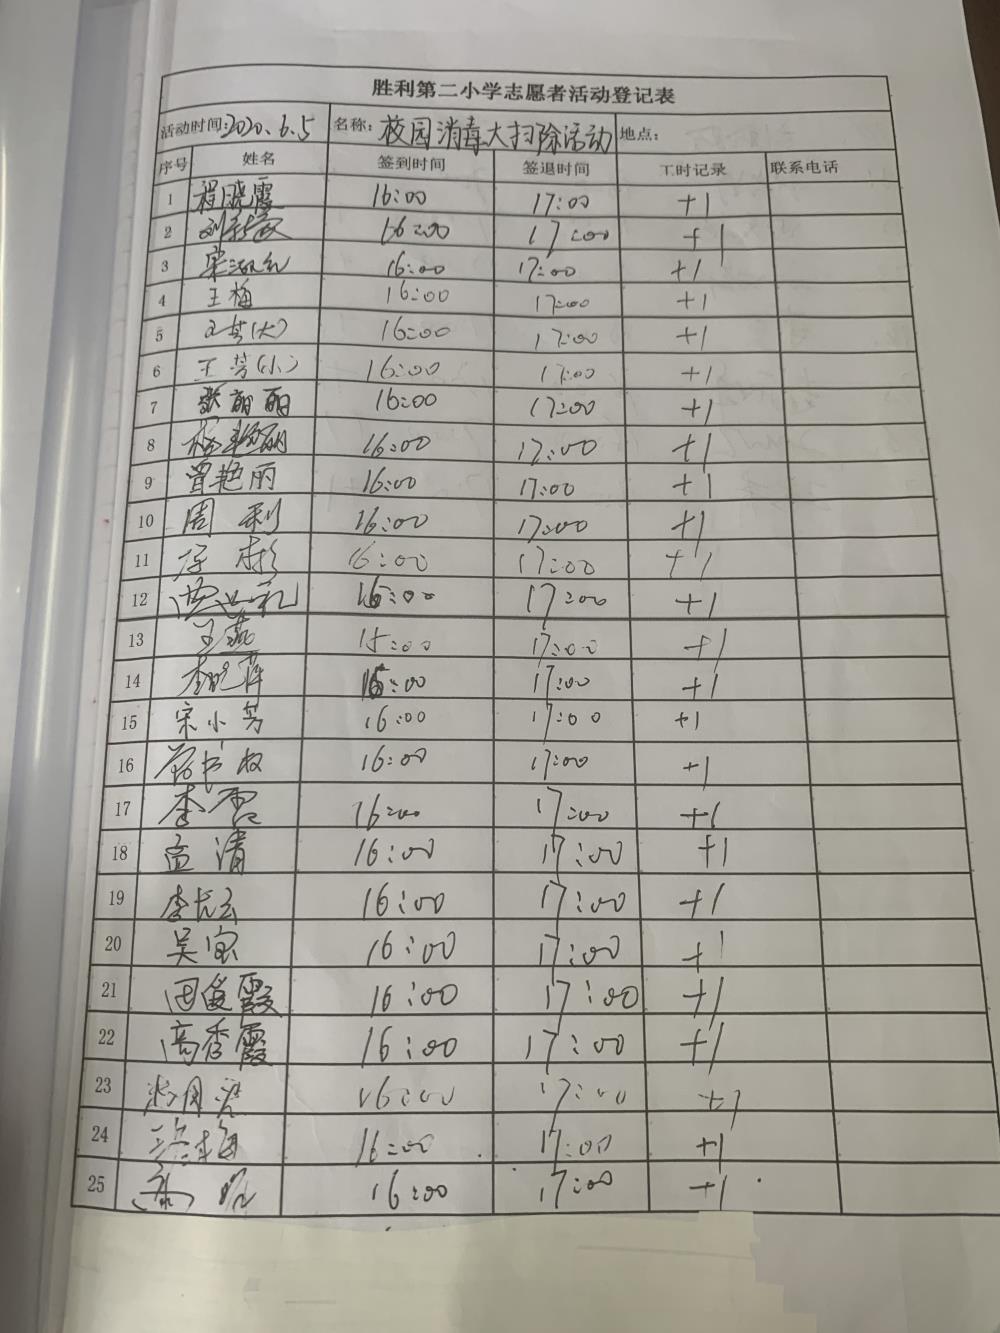 胜利第二小学志愿者活动登记表
活动时间:2020.6.5 名称：校园消毒大扫除活动 地点：
序号 姓名 签到时间 签退时间 工时记录 联系电话
1 程晓霞 16:00 17:00 +1
2 刘 16:00 17:00 +1
3 宋 16:00 17:00 +1
4 王梅 16:00 17:00 +1
5 王芳(大) 16:00 17:00 +1
6 王芳(小) 16:00 17:00 +1
7 张丽丽 16:00 17:00 +1
8 16:00 17:00 +1
9 曾艳丽 16:00 17:00 +1
10 周利 16:00 17:00 +1
11 16:00 17:00 +1
12 16:00 17:00 +1
13 王燕 15:00 17:00 +1
14 李晓萍 16:00 17:00 +1
15 宋小芳 16:00 17:00 +1
16 16:00 17:00 +1
17 李雪 16:00 17:00 +1
18 孟清 16:00 17:00 +1
19 李云 16:00 17:00 +1
20 吴宝 16:00 17:00 +1
21 田俊霞 16:00 17:00 +1
22 高香霞 16:00 17:00 +1
23 16:00 17:00 +1
24 16:00 17:00 +1
25 16:00 17:00 +1